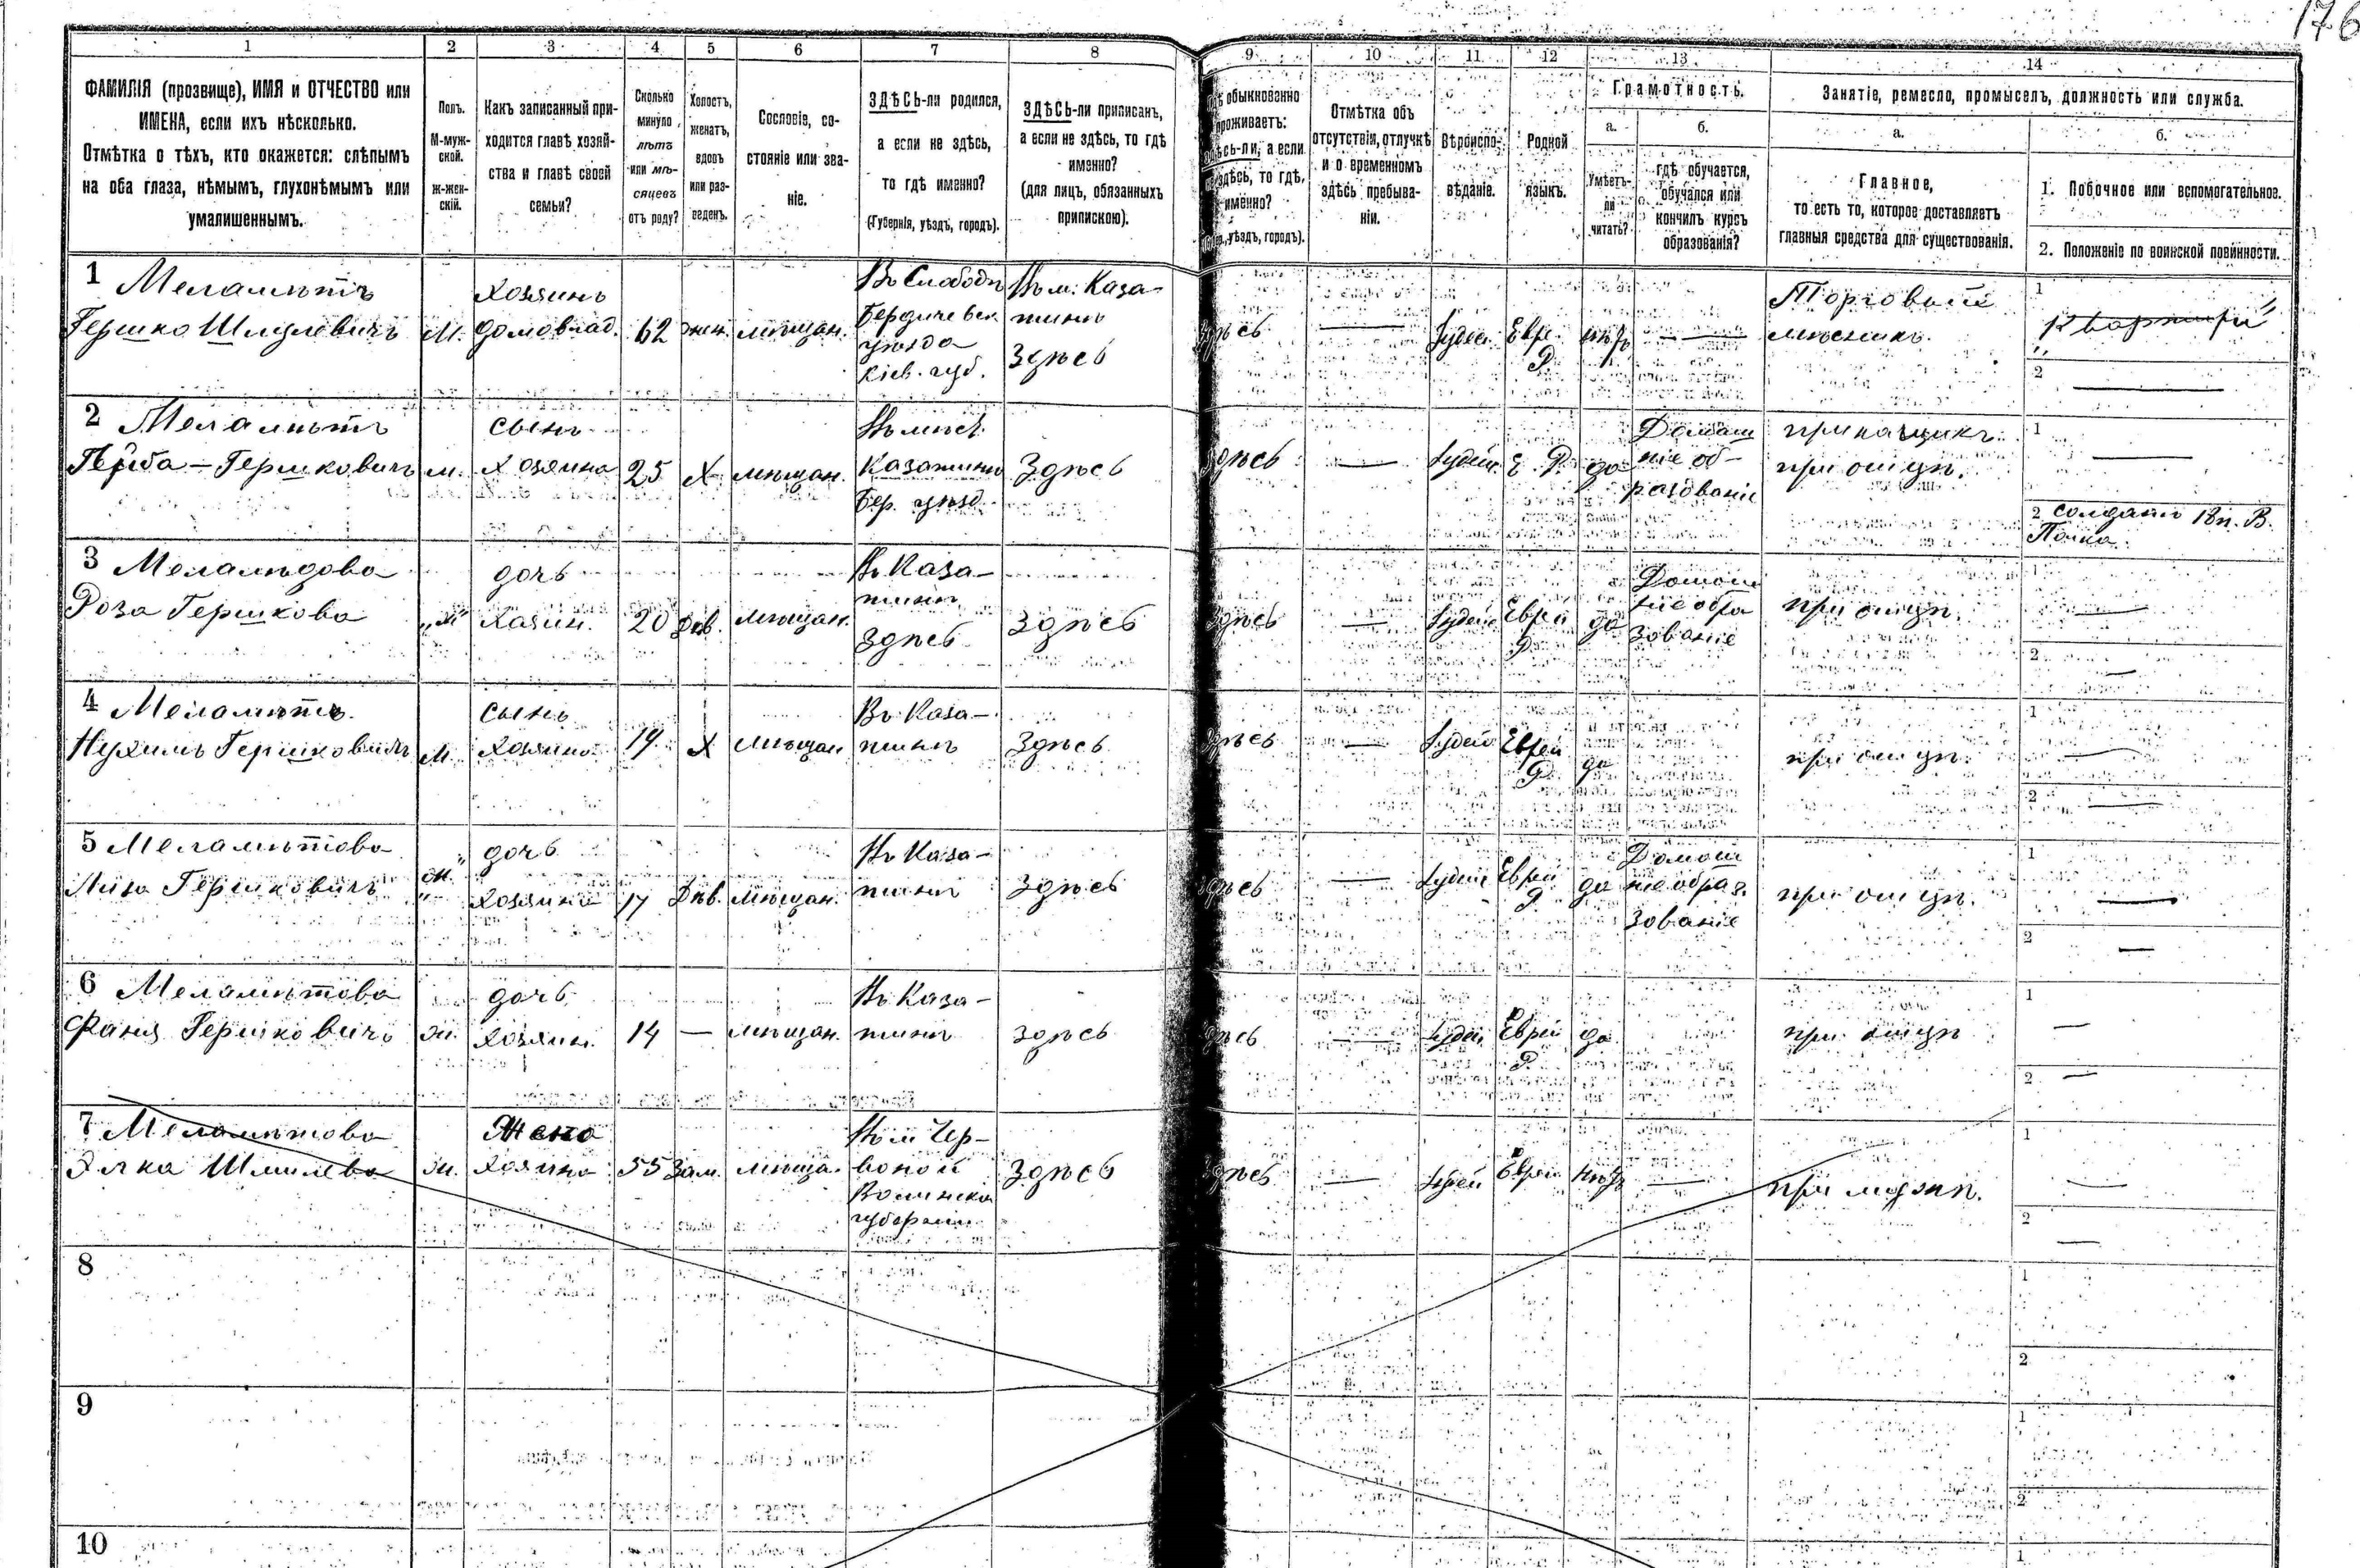 176
1 2 3 4 5 6 7 8 9 10 11 12 13 14
ФАМИЛІЯ (прозвище), ИМЯ и ОТЧЕСТВО или
ИМЕНА, если ихъ нѣсколько.
Отмѣтка о тѣхъ, кто окажется: слѣпымъ
на оба глаза, нѣмымъ, глухонѣмымъ или
умалишеннымъ.
Полъ.
М-муж-
ской.
ж-жен-
скій.
Какъ записанный при-
ходится главѣ хозяй-
ства и главѣ своей
семьи?
Сколько
минуло
лѣтъ
или мѣ-
сяцевъ
отъ роду?
Холостъ,
женатъ,
вдовъ
или раз-
веденъ.
Сословіе, со-
стояніе или зва-
ніе.
ЗДѢСЬ-ли родился,
а если не здѣсь,
то гдѣ именно?
(Губернія, уѣздъ, городъ).
ЗДѢСЬ-ли приписанъ,
а если не здѣсь, то гдѣ
именно?
(для лицъ, обязанныхъ
припискою).
обыкновенно
проживаетъ:
здѣсь-ли, а если
не здѣсь, то гдѣ,
именно?
уѣздъ, городъ).
Отмѣтка объ
отсутствіи, отлучкѣ
и о временномъ
здѣсь пребыва-
ніи.
Вѣроиспо-
вѣданіе.
Родной
языкъ.
Грамотность.
а.
Умѣетъ-
ли
читать?
б.
гдѣ обучается,
обучался или
кончилъ курсъ
образованія?
Занятіе, ремесло, промыселъ, должность или служба.
а.
Главное,
то есть то, которое доставляетъ
главныя средства для существованія.
б.
1. Побочное или вспомогательное.
2. Положеніе по воинской повинности.
1 Меламѣтъ
Гершко Шмулевичъ
М.
Хозяинъ
домовлад.
62
жен.
мѣщан.
Въ Слободѣ
Бердичевск
уѣзда
Кіев. губ.
Въ м. Каза-
тинѣ
Здѣсь
Здѣсь
—
Іудей
Евре.
Р.
нѣтъ
—
Торговый
мясникъ.
1
2 —
2 Меламѣтъ
Гершковичъ
м.
сынъ
Хозяина
25
Х
мѣщан.
Въ мѣст.
Казатинѣ
Бер. уѣзд.
Здѣсь
Здѣсь
—
Іудей
Е. Р.
да
Домаш
ніе об-
разованіе
приказщикъ
при отцѣ.
1 —
2 солдатъ 18 п. В.
Полка.
3 Меламедова
Роза Гершкова
„ж“
дочь
Хазяин.
20
Дѣв.
мѣщан.
Въ Каза-
тинѣ
Здѣсь
Здѣсь
Здѣсь
—
Іудей
Еврей
Р.
да
Домаш
ніе обра
зованіе
при отцѣ.
1 —
2 —
4 Меламѣтъ.
Нухимъ Гершковичъ
М.
сынъ
Хозяина
19
Х
мѣщан
Въ Каза-
тинѣ
Здѣсь
Здѣсь
—
Іудей
Еврей
Р.
да
при отцѣ.
1 —
2 —
5 Меламѣтова
Гершковичъ
„ж.“
дочь
Хозяина
17
Дѣв.
мѣщан.
Въ Каза-
тинѣ
Здѣсь
Здѣсь
—
Іудей
Еврей
Р.
да
Домаш
ніе обра
зованіе
при отцѣ.
1 —
2 —
6 Меламѣтова
Фаня Гершковичъ
ж.
дочь
Хозяин.
14
—
мѣщан.
Въ Каза-
тинѣ
здѣсь
здѣсь
—
Іудей
Еврей
Р.
да
при отцѣ
1 —
2 —
7 Меламѣтова
Элка Шмилева
ж.
Жена
Хозяина
55
Зам.
мѣща.
Въ м Чер-
воной
Волинска
губерніи
Здѣсь
Здѣсь
—
Іудей
Еврей
нѣтъ
—
при мужѣ.
1 —
2 —
8
1
2
9
1
2
10
1